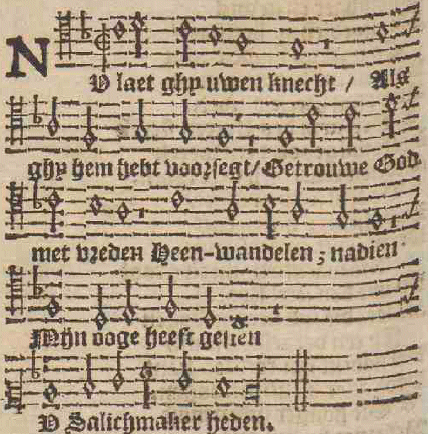 NV laet ghy uwen knecht / Als
ghy hem hebt voorsegt / Getrouwe God
met vreden Heen-wandelen; nadien
Mijn ooge heeft gesien
V Salichmaker heden.